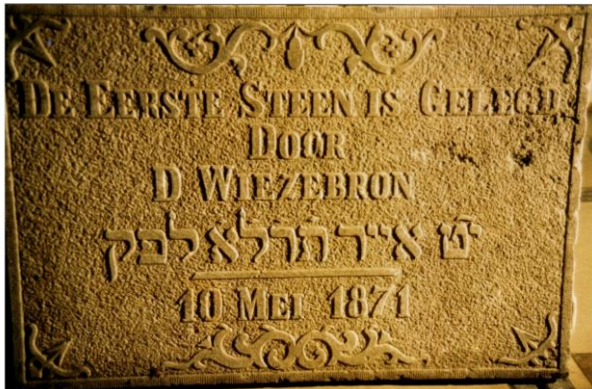 DE EERSTE STEEN IS GELEGD
DOOR
D WIEZEBRON
יט אייר תרלא לפק
10 MEI 1871